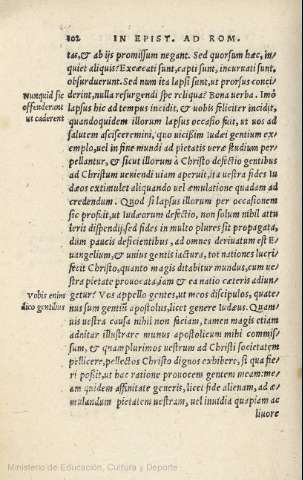 102 IN EPIST. AD ROM.
tas, & ab ijs promissum negant. Sed quorsum hæc, in-
quiet aliquis? Excæcati sunt, capti sunt, incuruati sunt,
obsurduerunt. Sed num ita lapsi sunt, ut prorsus conci
Nunquid sic offenderunt ut caderent
derint, nulla resurgendi spe reliqua? Bona uerba. Imò
lapsus hic ad tempus incidit, & uobis feliciter incidit,
quandoquidem illorum lapsus occasio fuit, ut uos ad
salutem ascisceremini, quo uicißim iudæi gentium ex
emplo, uel in fine mundi ad pietatis ueræ studium per-
pellantur, & sicut illorum à Christo defectio gentibus
ad Christum ueniendi uiam aperuit, ita uestra fides Iu
dæos extimulet aliquando uel æmulatione quadam ad
credendum. Quod si lapsus illorum per occasionem
sic profuit, ut Iudæorum defectio, non solum nihil attu
lerit dispendij, sed fides in multo plures sit propagata,
dum paucis deficientibus, ad omnes deriuatum est E-
uangelium, & unius gentis iactura, tot nationes lucri
fecit Christo, quanto magis ditabitur mundus, cum ue-
stra pietate prouocata, iam & ea natio cæteris adiun-
Vobis enim dico gentibus
getur? Vos appello gentes, ut meos discipulos, quate-
nus sum gentiũ apostolus, licet genere Iudæus. Quam-
uis uestra causa nihil non faciam, tamen magis etiam
adnitar illustrare munus apostolicum mihi commis-
sum, & quamplurimos uestrum ad Christi societatem
pellicere, pellectos Christo dignos exhibere, si qua fie-
ri poßit, ut hac ratione prouocem gentem meam: me-
am quidem affinitate generis, licet fide alienam, ad æ-
mulandum pietatem uestram, uel inuidia quapiam ac
liuore
Ministerio de Educación, Cultura y Deporte